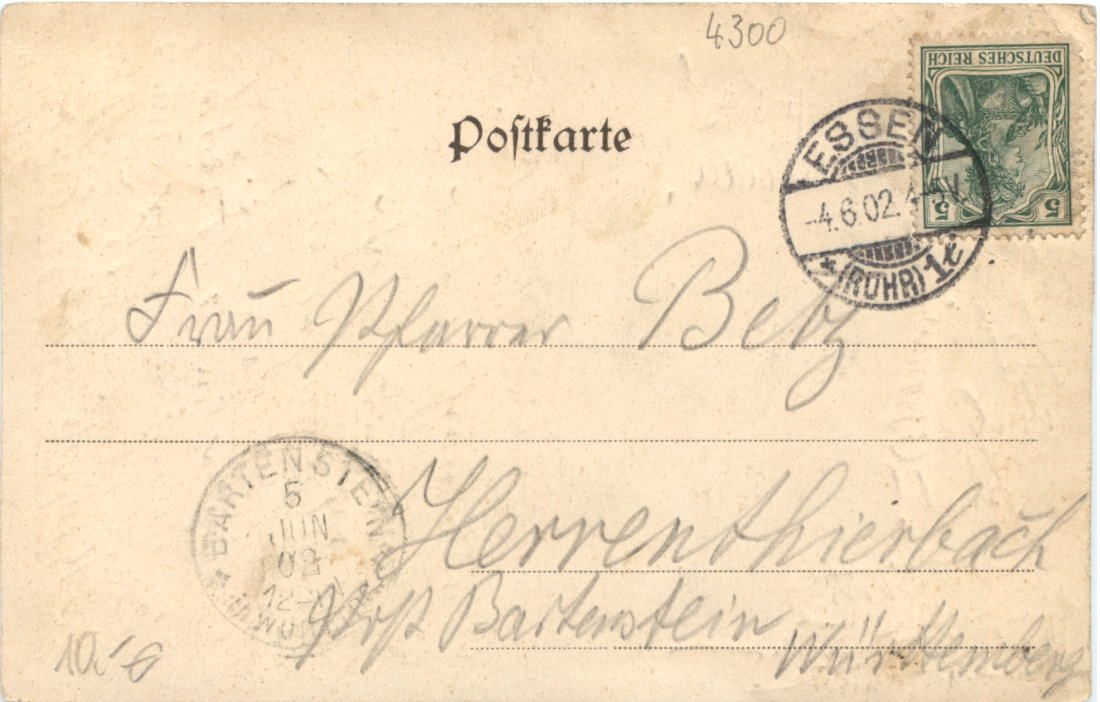 4300
DEUTSCHES REICH
5 5
Postkarte
ESSEN
-4.6.02. 4-5N.
* (RUHR) 1t
Frau Pfarrer Betz
BARTENSTEIN
5
JUN
02
12-
Herrenthierbach
Post Bartenstein
Württemberg
10,-